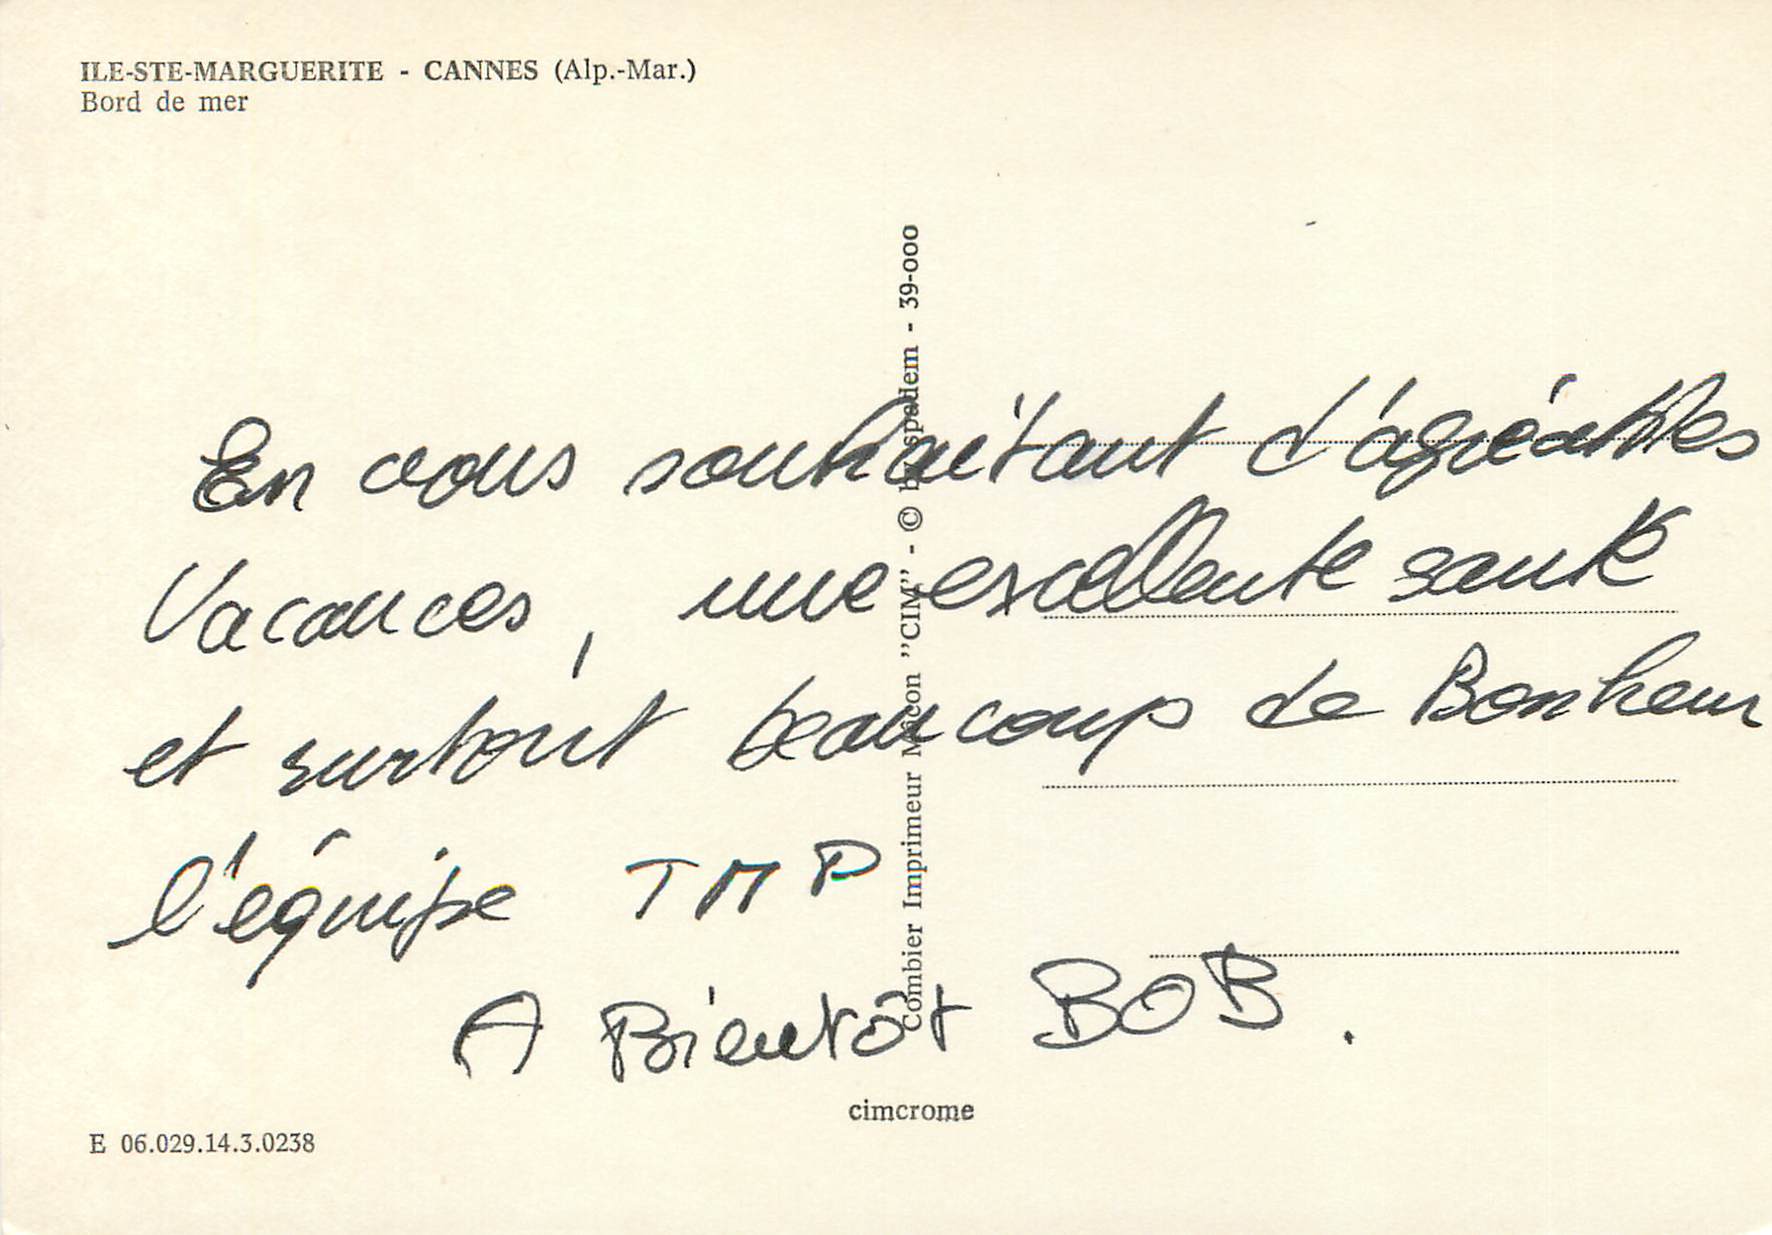 ILE-STE-MARGUERITE - CANNES (Alp.-Mar.)
Bord de mer
Combier Imprimeur Macon "CIM" - © by spadem - 39-000
En vous souhaitant d'agréables
Vacances, une excellente santé
et surtout beaucoup de Bonheur
l'équipe TMP
A Bientôt BOB.
cimcrome
E 06.029.14.3.0238